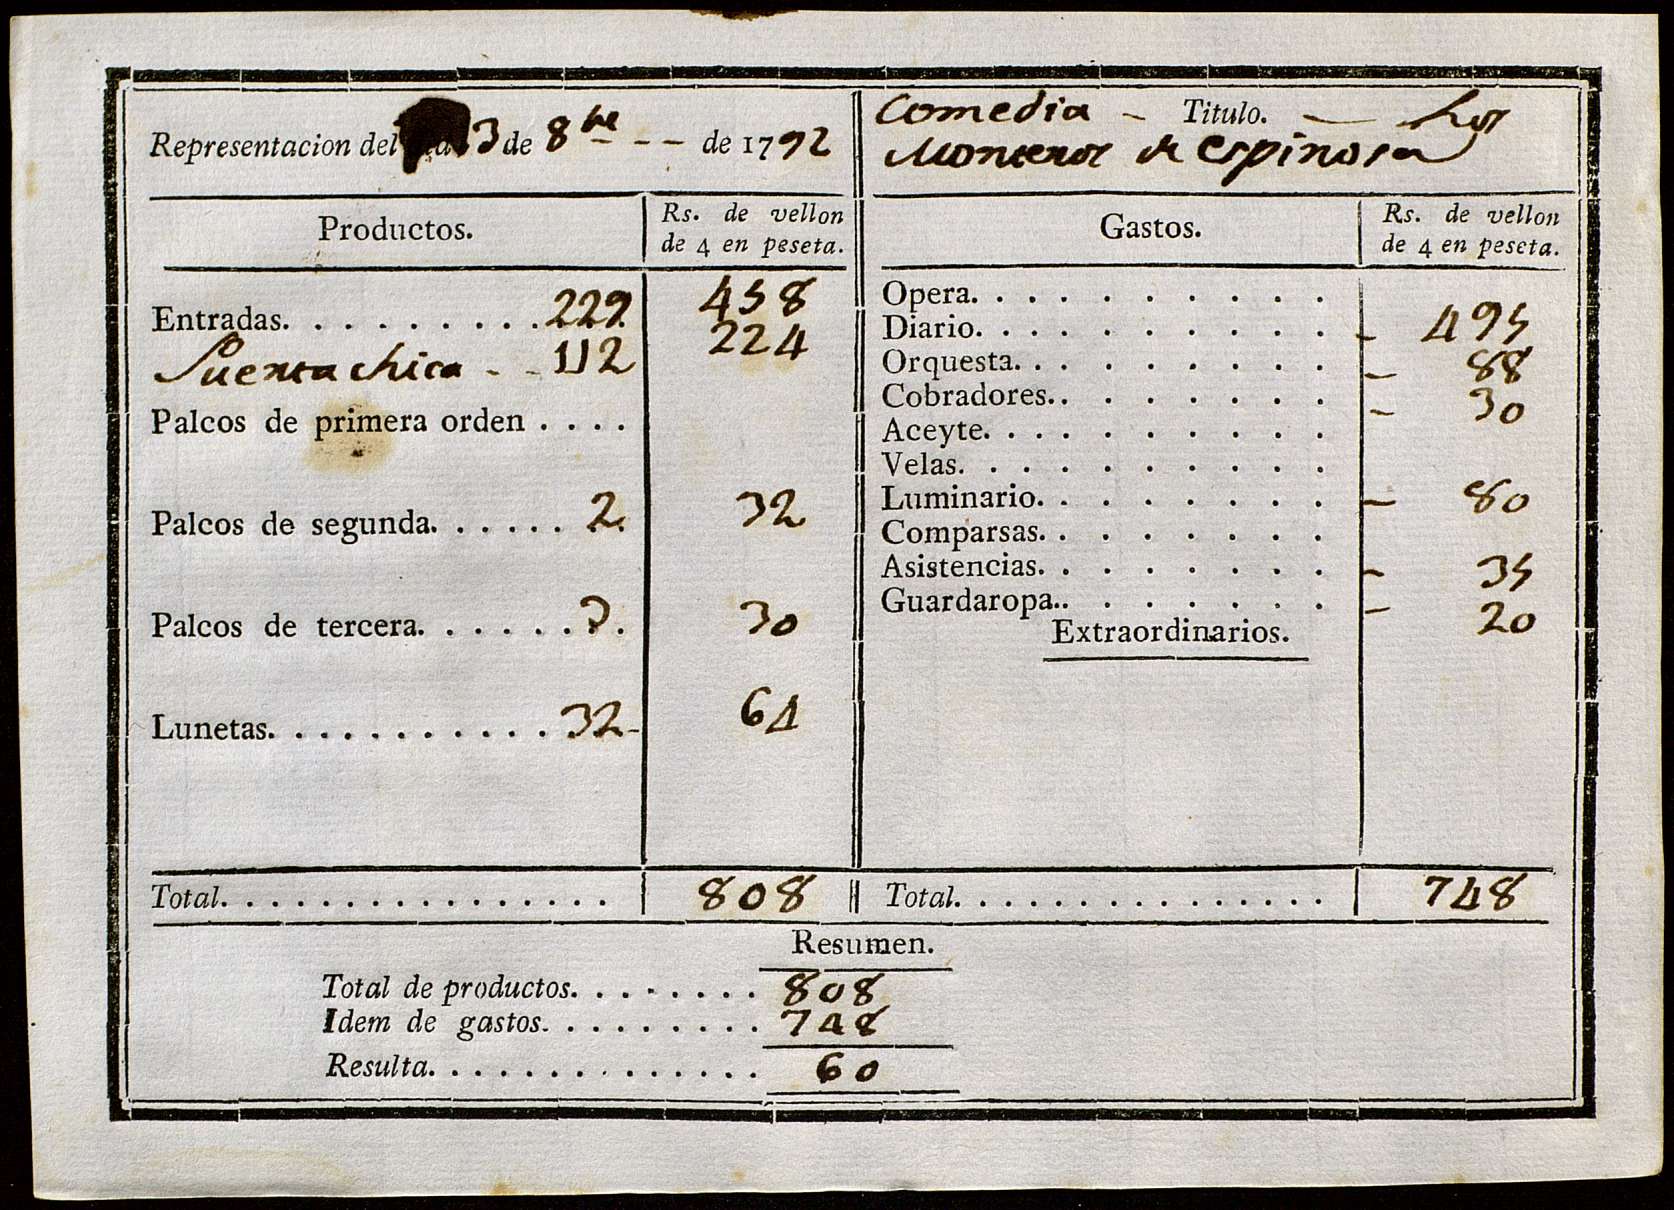 Representacion del 3 de 8bre - - de 1792
Comedia - Titulo. — Los
Monteros de espinosa
Productos.
Rs. de vellon
de 4 en peseta.
Gastos.
Rs. de vellon
de 4 en peseta.
Entradas. . . . . . . . . . 229. 458
Puerta chica - - 112 224
Palcos de primera orden . . . .
Palcos de segunda. . . . . . 2. 32
Palcos de tercera. . . . . . 3. 30
Lunetas. . . . . . . . . . . . 32- 64
Opera. . . . . . . . . .
Diario. . . . . . . . . . - 495
Orquesta. . . . . . . . . - 88
Cobradores. . . . . . . . - 30
Aceyte. . . . . . . . . .
Velas. . . . . . . . . .
Luminario. . . . . . . . - 80
Comparsas. . . . . . . .
Asistencias. . . . . . . . - 35
Guardaropa. . . . . . . . - 20
Extraordinarios.
Total. . . . . . . . . . . . . . . . 808
Total. . . . . . . . . . . . . . . 748
Resumen.
Total de productos. . . . . . . . 808
Idem de gastos. . . . . . . . . 748
Resulta. . . . . . . . . . . . . . 60